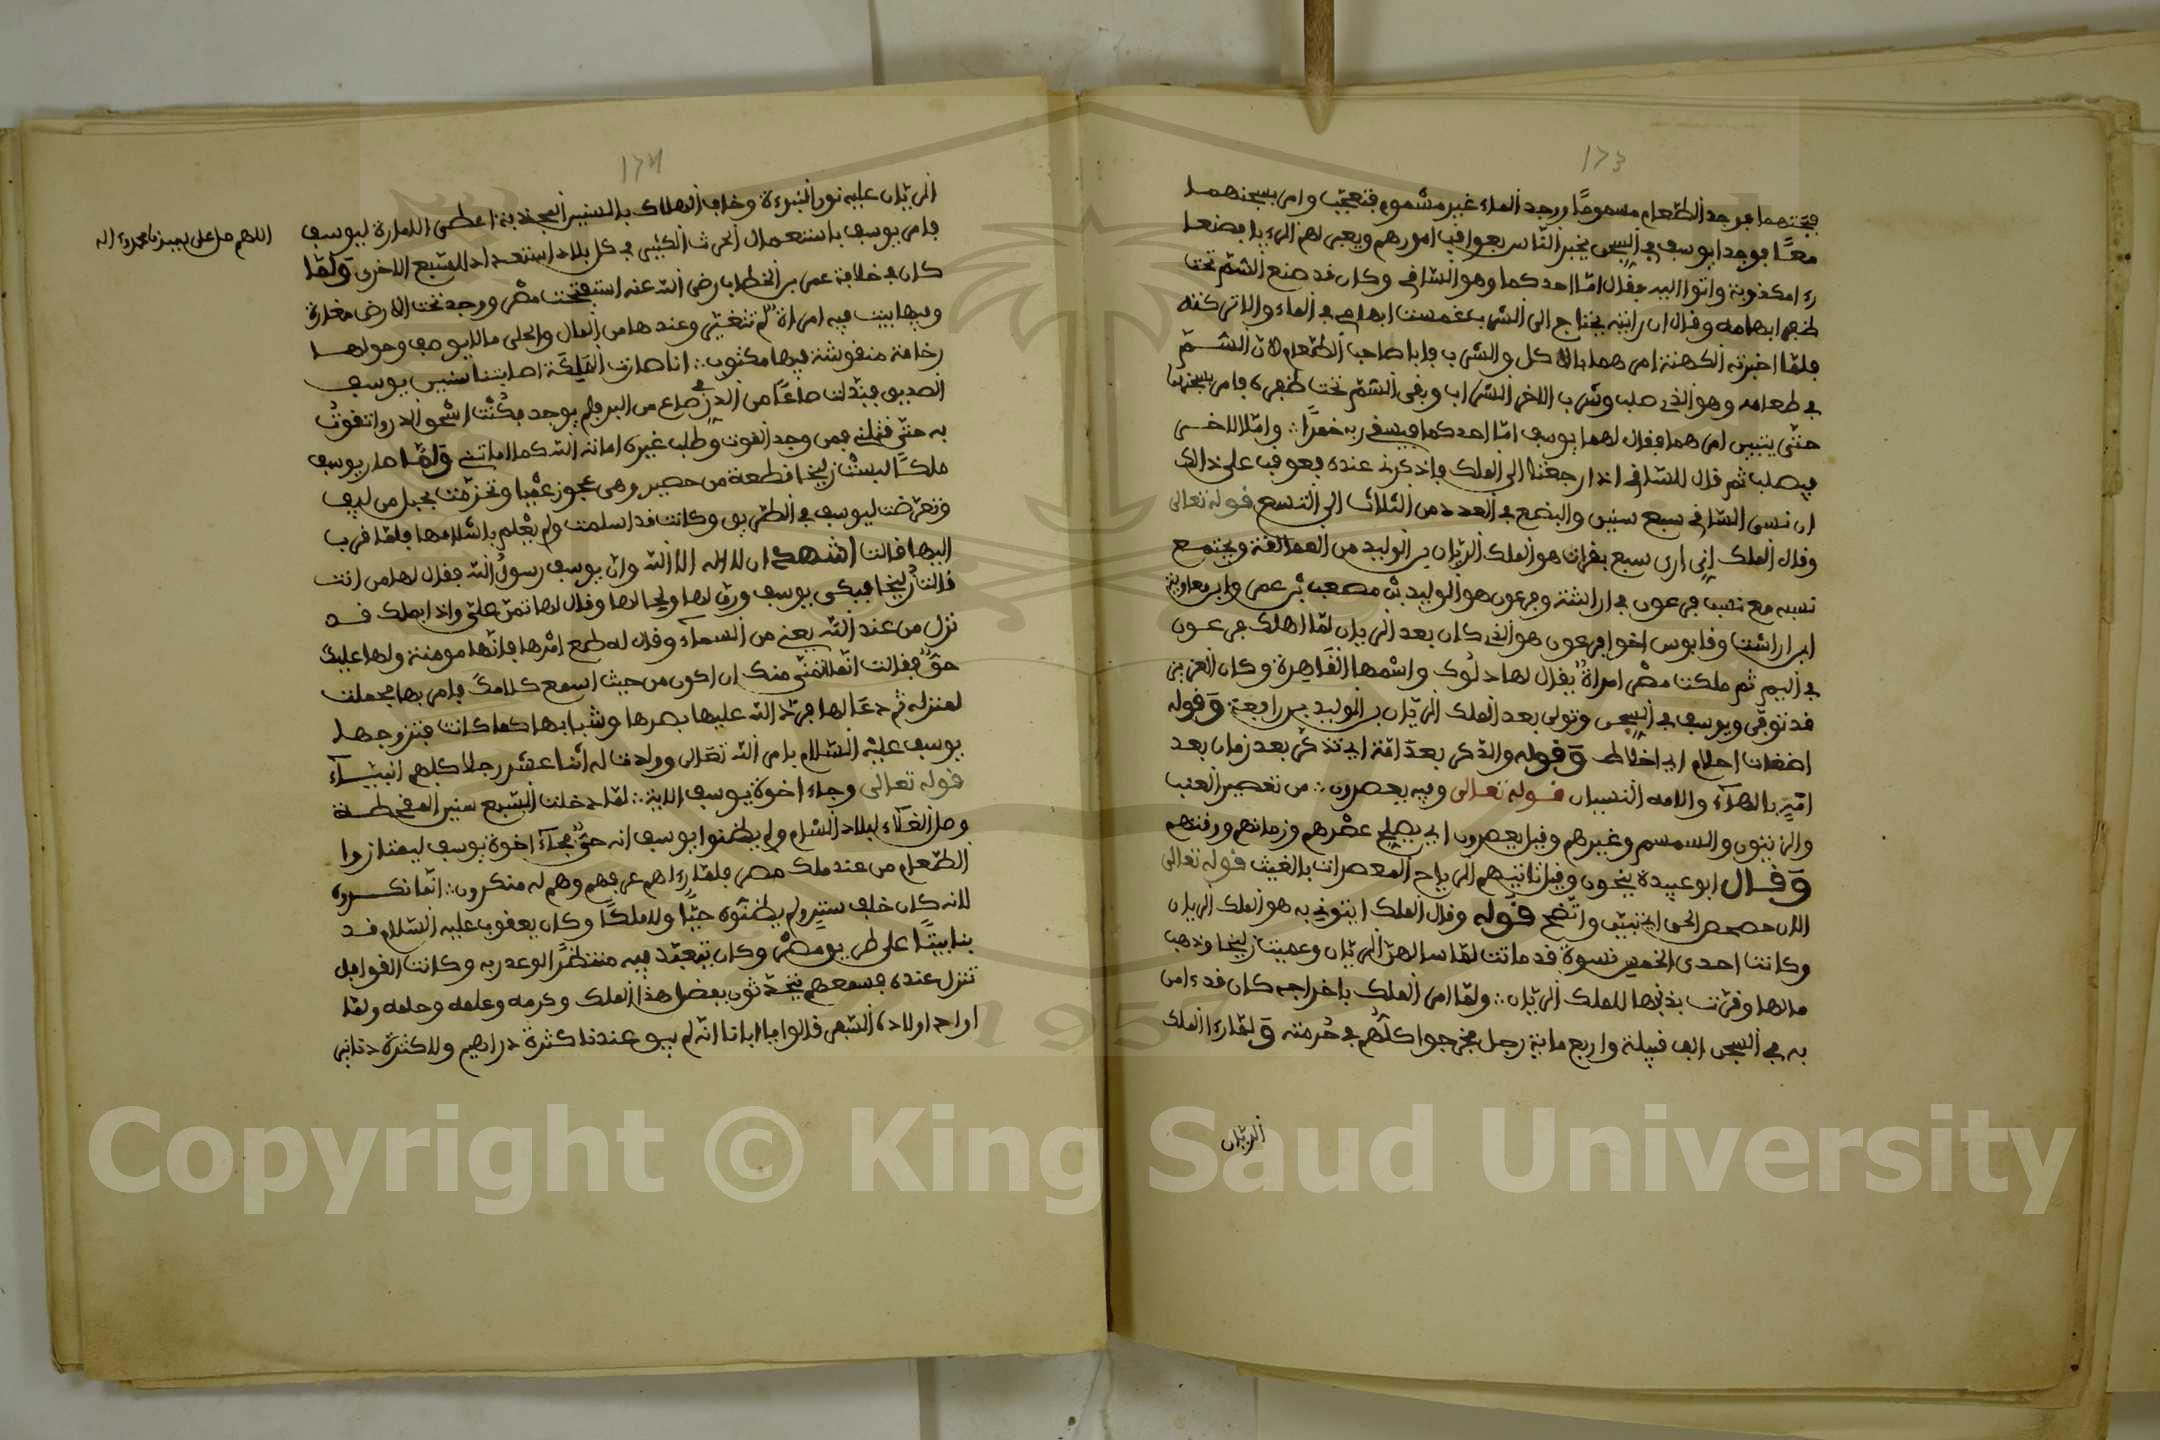 ١٢٣
فجئتهما فوجد الطعام مسموما ووجد الماء غير مشموم فتعجب وامر بسجنهما
معا فوجدا يوسف في السجن يخبر الناس بعواقب امورهم ويعبر لهم الرءيا فصنعا
رءيا مكذوبة واتوا اليه فقال اما احدكما وهو الساقي وكان قد صنع السم تحت
ظفر ابهامه وقال ان رايته يحتاج الى الشرب غمست ابهامي في الماء والا تركته
فلما اخبرته الكهنة امرهما بالاكل والشرب فابا صاحب الطعام لان السم
في طعامه وهو الذي صلب وشرب الاخر الشراب وبقي السم تحت ظفره فامر بسجنهما
حتى يتبين امرهما فقال لهما يوسف اما احدكما فيسقي ربه خمرا وامّا الاخر
فيصلب ثم قال للساقي اذا رجعت الى الملك فاذكرني عنده فعوقب على ذالك
ان نسي الساقي سبع سنين والبضع في العدد من الثلاث الى التسع قوله تعالى
وقال الملك اني ارى سبع بقرات هو الملك الريان بن الوليد من العمالقة ويجتمع
نسبه مع نسب فرعون في اراشة وفرعون هو الوليد بن مصعب بن عمر وابن معاوية
ابن اراشت وقابوس اخوا فرعون هو الذي كان بعد الريان لما اهلك فرعون
في اليم ثم ملكت مصر امراة يقال لها دلوك واسمها القاهرة وكان العزيز
قد توفي ويوسف في السجن وتولى بعد الملك الريان بن الوليد بن رابعة وقوله
اضغاث احلام اي اخلاط وقوله والذكر بعد امة اي تذكر بعد زمان بعد
امة بالهاء والامه النسيان قوله تعالى وفيه يعصرون من تعصير العنب
والزيتون والسمسم وغيرهم وقيل يعصرون اي يصلح عصرهم وزمانهم ورقتهم
وقال ابو عبيدة ينجون وقيل تاتيهم الرياح المعصرات بالغيث قوله تعالى
الان حصحص الحق اي تبين واتضح قوله وقال الملك ايتوني به هو الملك الريان
وكانت احدى الخمس نسوة قد ماتت لما سالهن الريان وعميت زليخا وذهب
مالها وفرت بذنبها للملك الريان ولما امر الملك باخراجه كان قد ءامن
به في السجن الف قبيلة واربع ماية رجل فخرجوا كلهم في حرمته ولما رءا الملك
الريان
١٢٤
الريان عليه نور النبوءة وخاف الهلاك بالسنين المجدبة اعطى الامارة ليوسف
فامر يوسف باستعمال الحرث الكثير في كل بلاد استعدادا للسبع الاخرى ولما
اللهم صل على سيدنا محمد وءاله
كان في خلافة عمر بن الخطاب رضي الله عنه استفتحت مصر ووجد تحت الارض مغارة
وفيها بيت فيه امراة لم تتغير وعندها من المال والحلي ما لا يوصف وحولها
رخامة منقوشة فيها مكتوب انا صارت الملكة اصابتنا سنين يوسف
الصديق فبدلت صاعا من الدر في صاع من البر فلم يوجد فكنت اسحو الدر واتقوت
به حتى قتلني فمن وجد القوت وطلب غيره اماته الله كما اماتني ولما صار يوسف
ملكا لبست زليخا قطعة من حصير وهي عجوز عميا وتحزمت بحبل من ليف
وتعرضت ليوسف في الطريق وكانت قد اسلمت ولم يعلم باسلامها فلما قرب
اليها قالت اشهد ان لا اله الا الله وان يوسف رسول الله فقال لها من انت
قالت زليخا فبكى يوسف ورق لها ولحالها وقال لها تمن علي واذا بملك قد
نزل من عند الله يعني من السماء وقال له طمع امرها فانها مومنة ولها عليك
حق فقالت انما اتمنى منك ان اكون من حيث اسمع كلامك فامر بها فحملت
لمنزله ثم دعا لها فرد الله عليها بصرها وشبابها كما كانت فتزوجها
يوسف عليه السلام بامر الله تعالى وولدت له اثنا عشر رجلا كلهم انبياء
قوله تعالى وجاء اخوة يوسف الاية لما دخلت السبع سنين المقحطة
وصل الغلاء لبلاد الشام ولم يظنوا يوسف انه حي فجاء اخوة يوسف ليمتازوا
الطعام من عند ملك مصر فلما رءاهم عرفهم وهم له منكرون انما نكروه
لانه كان خلف ستر ولم يظنوه حيا ولا ملكا وكان يعقوب عليه السلام قد
بنا بيتا على طريق مصر وكان يتعبد فيه منتظرا لوعد ربه وكانت القوافل
تنزل عنده فسمعهم يتحدثون بفضل هذا الملك وكرمه وعلمه وحلمه ولما
اراد اولاده السفر قالوا يا ابانا انه لم يبق عندنا كثرة دراهم ولا كثرة دنانير
Copyright © King Saud University
1957